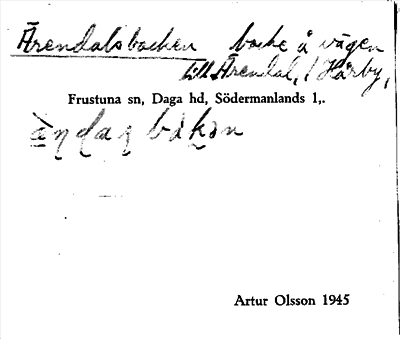 Ärendalsbacken backe å vägen
till Ärendal, i Hårby,
Frustuna sn, Daga hd, Södermanlands l,.
Artur Olsson 1945